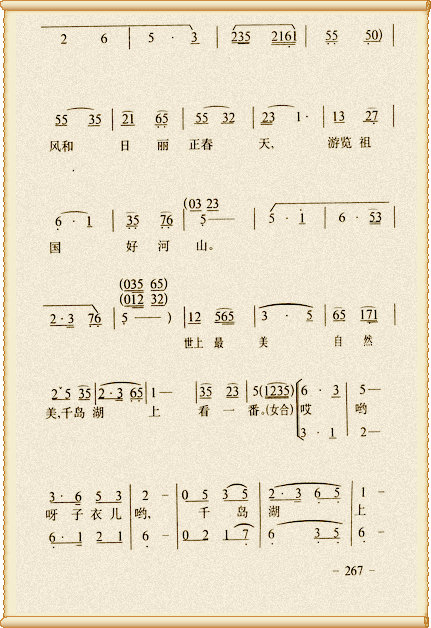 2 6 | 5 · 3 | 235 2161 | 55 50) |
55 35 | 21 65 | 55 32 | 23 1 · | 13 27 |
风和 日 丽 正春 天, 游览 祖
(03 23
6 · 1 | 35 76 | 5 —— | 5 · 1 | 6 · 53 |
国 好 河 山。
(035 65)
(012 32)
2 · 3 76 | 5 —— ) | 12 565 | 3 · 5 | 65 171 |
世上 最 美 自 然
2 5 35 | 2 · 3 65 | 1 — | 35 23 | 5 (1235) | 6 · 3 | 5 —
美,千岛 湖 上 看 一 番。(女合) 哎 哟
3 · 1 | 2 —
3 · 6 5 3 | 2 — | 0 5 3 5 | 2 · 3 6 5 | 1 —
呀 子 衣 儿 哟, 千 岛 湖 上
6 · 1 2 1 | 6 — | 0 2 1 7 | 6 3 5 | 6 —
- 267 -